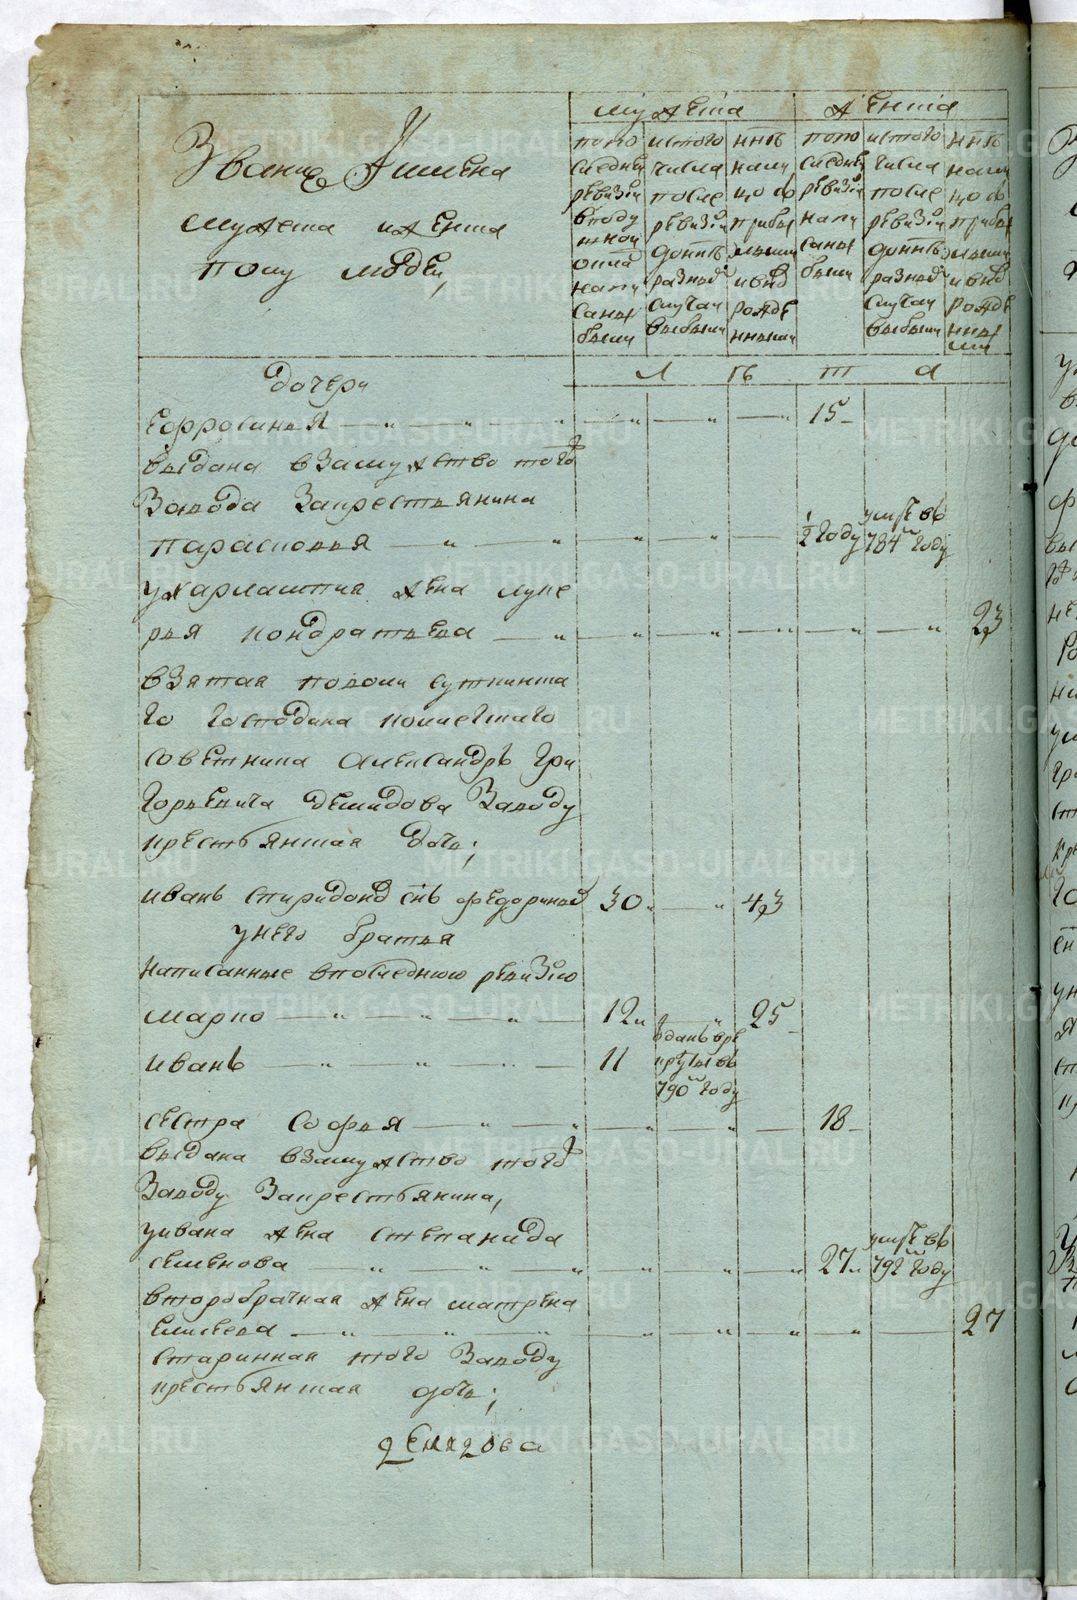 Звание И имена
мужеска и женска
полу людей,
мужеска
женска
попо
следней
ревизии
в поду
шной
окла
напи
саны
были
из того
числа
после
ревизии
до нне
разных
случаи
выбыли
нне
нали
цо с
прибыл
ыми
и внов
рожде
нными
попо
следней
ревизии
напи
саны
были
из того
числа
после
ревизии
до нне
разных
случаи
выбыли
нне
нали
цо с
прибыл
ыми
и внов
рожде
нны
ми
л ѣ т а
дочери
Ефросинья 15
выдана взамужство того ж
завода за крестьянина
Парасковья 1/2 году умре въ 784м году
у Харлампия жена Луке
рья Кондратьева 23
взятая
го господина колежскаго
советника Александръ Гри
горьевича Демидова заводу
крестьянская дочь;
Иванъ Спиридонов снъ Федориных 30 43
у него братья
написанные в последнюю ревизию
Марко 12 25
Иванъ 11 зданъ вре
круты въ
790м году
сестра Софья 18
выдана взамужство того ж
заводу за крестьянина,
у Ивана жена Степанида
Семенова 27 умре въ 792м году
второбрачная жена Матрена
Елисеева 27
старинная того заводу
крестьянская дочь;
METRIKI.GASO-URAL.RU